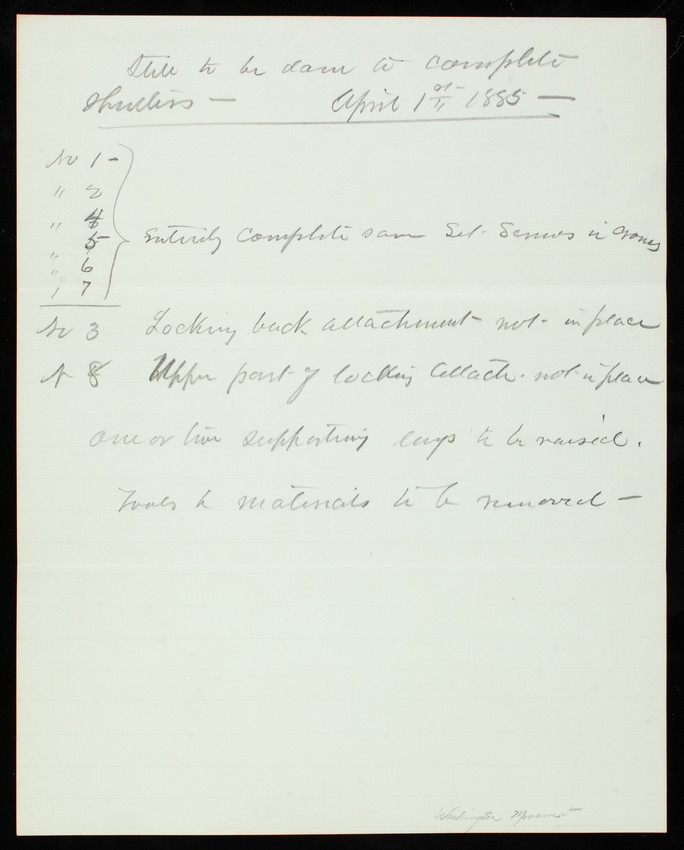 Still to be done to complete
Shutters — April 1st 1885 —
No 1 -
" 2
" 4
" 5
" 6
" 7
Entirely complete save Set-Screws in
No 3 Locking back attachment not in place
N 8 Upper part of locking attach. not in place
one or two supporting lugs to be raised.
Tools & materials to be removed —
Washington Monument